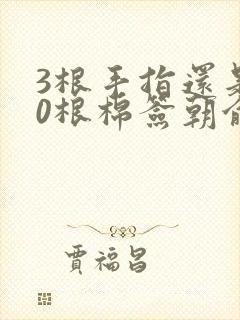 3根手指還是
0根棉簽朝俞
賈福昌